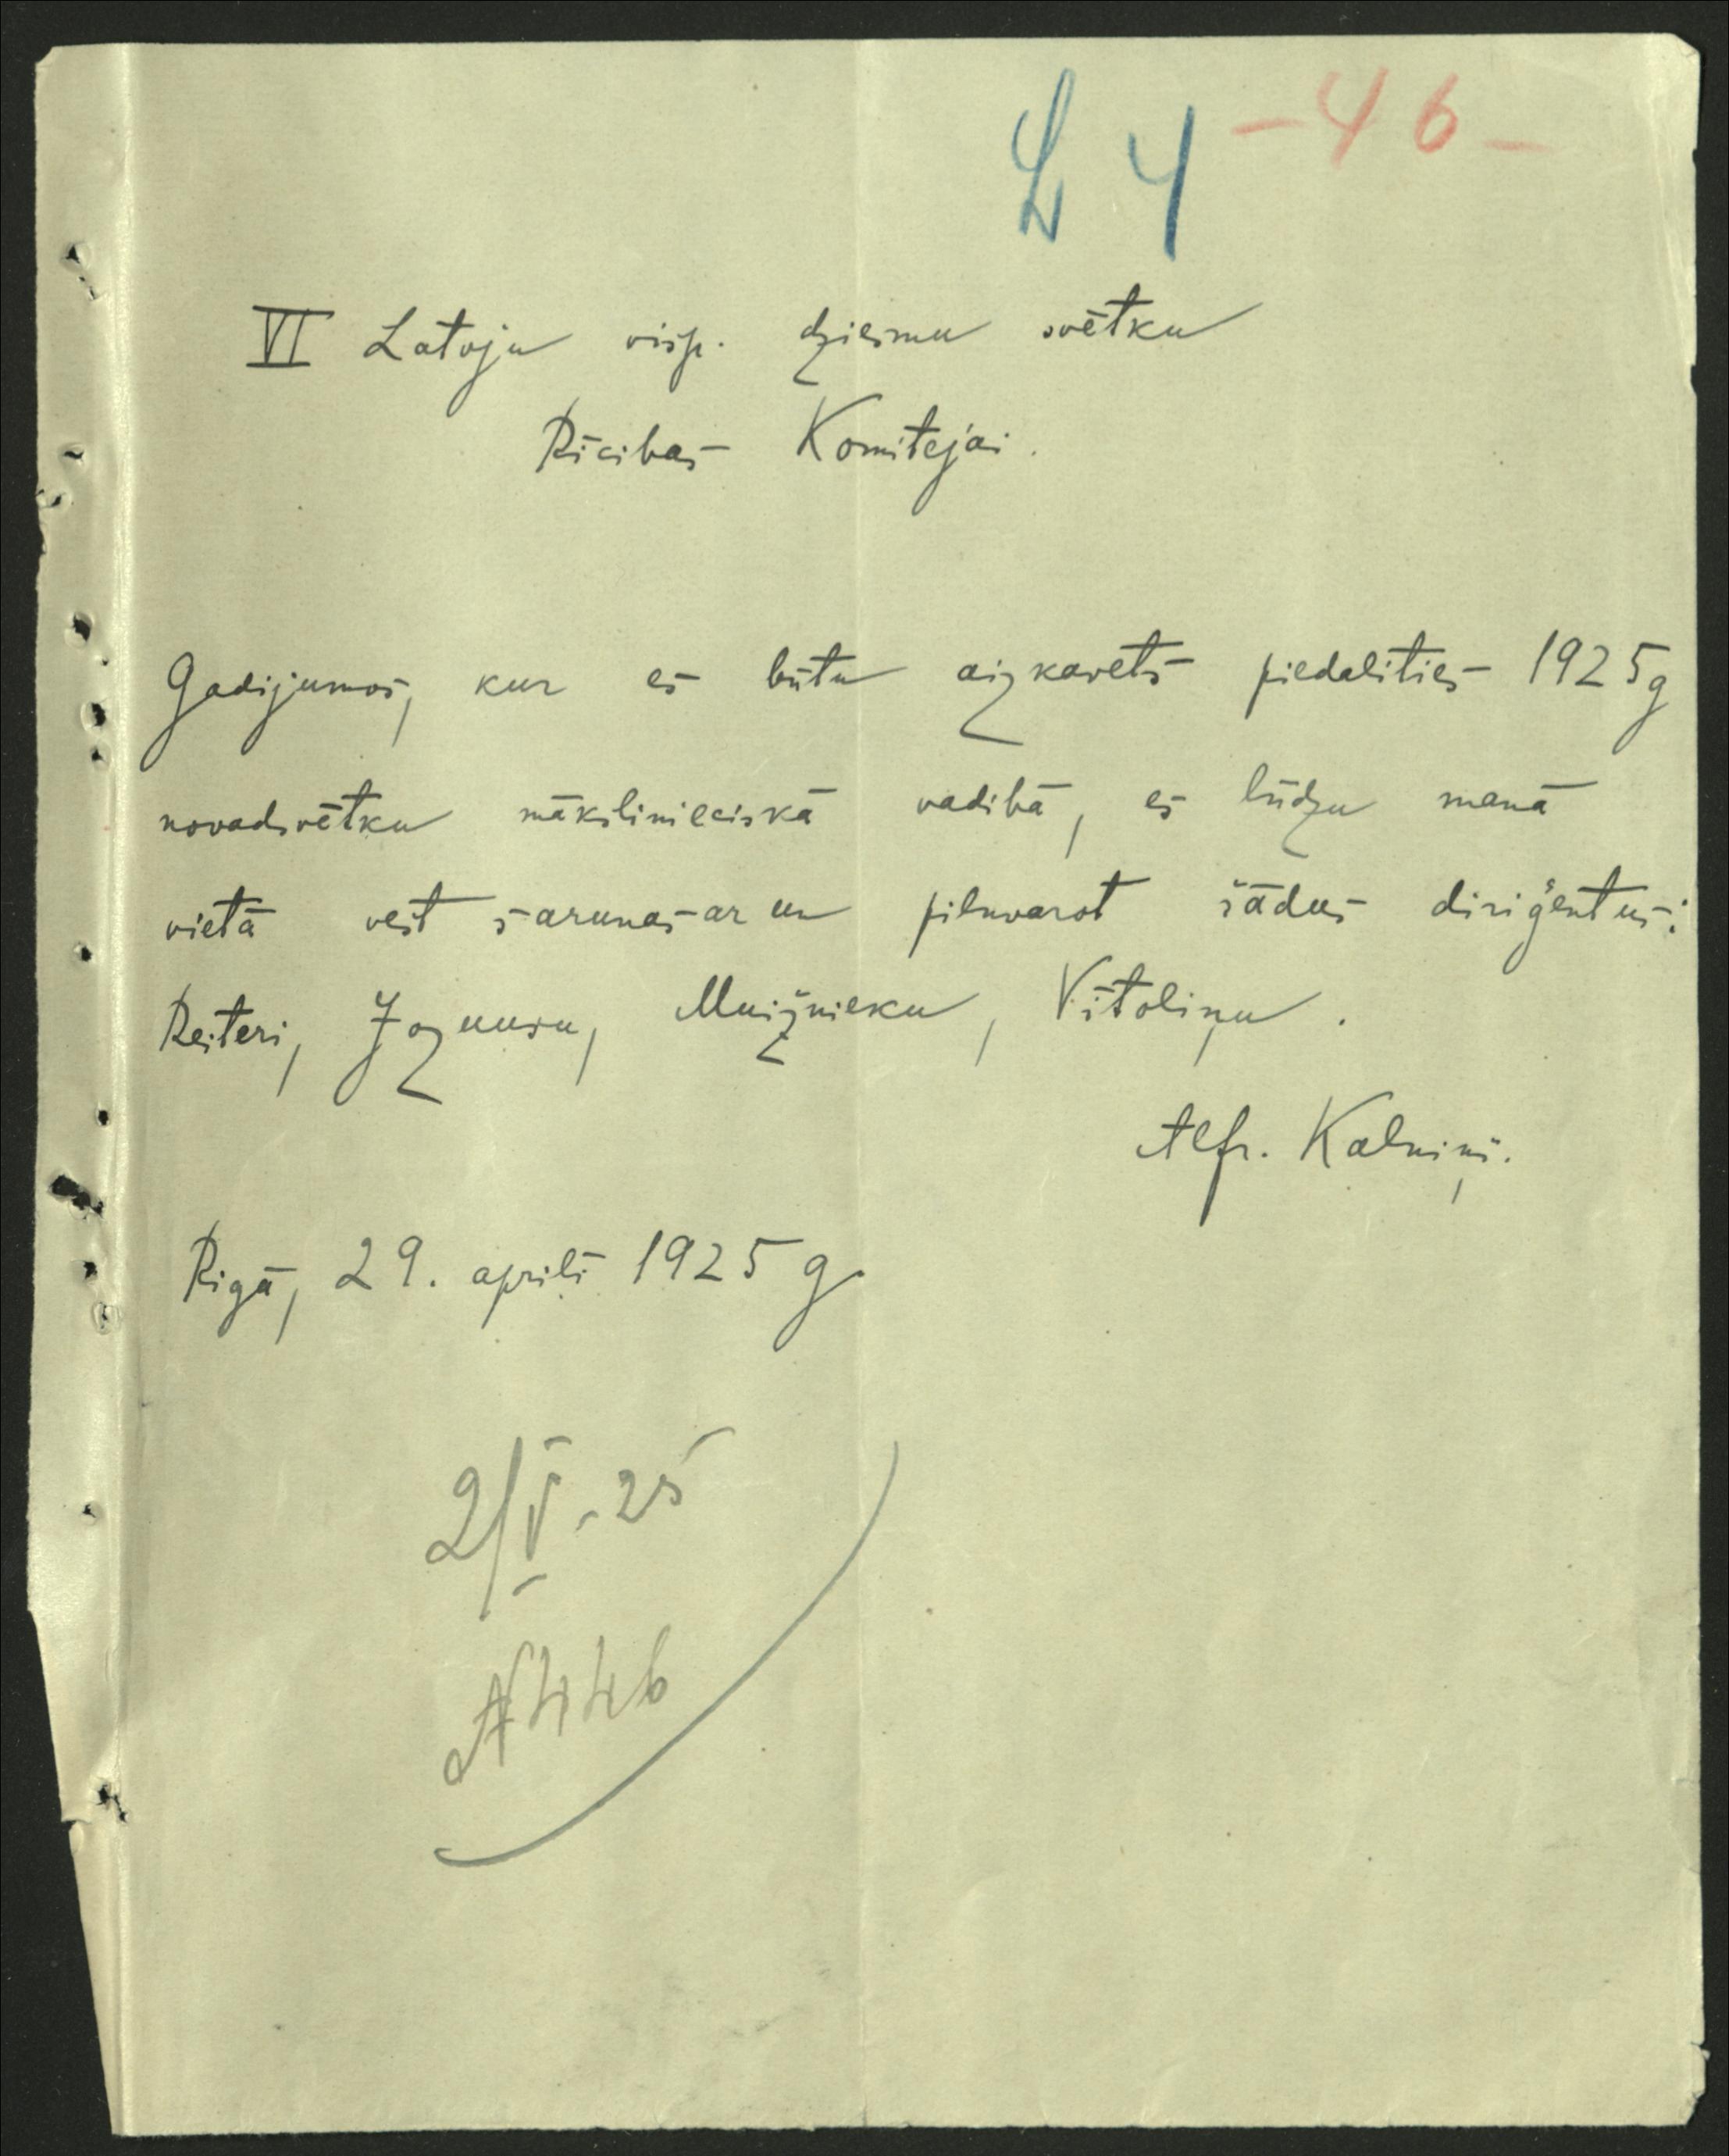 L 4 - 46 -
VI Latvju visp. dziesmu svētku
Rīcibas Komitejai.
Gadijumos, kur es būtu aizkavēts piedalities 1925 g
novadsvētku mākslinieciskā vadibā, es lūdzu manā
vietā vest sarunas ar un pilnvarot šādus diriģentus:
Reiteri, Jozuusu, Muižnieku, Vītoliņu.
Alfr. Kalniņš.
Rigā, 29. aprilī 1925 g.
2/V-25
№ 446